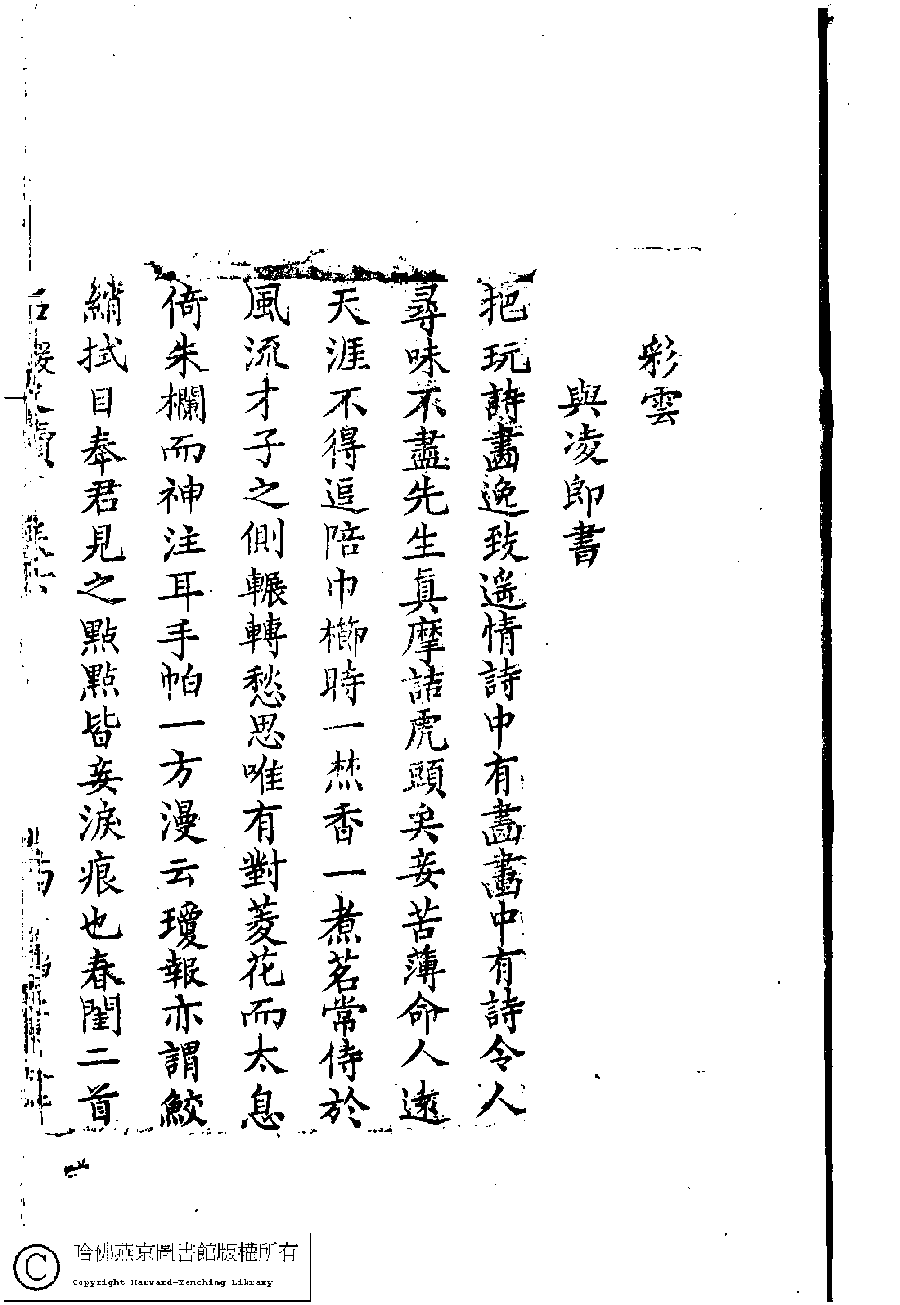 彩雲
與凌郎書
挹玩詩畫逸致遥情詩中有畫畫中有詩令人
尋味不盡先生真摩詰虎頭矣妾苦薄命人遠
天涯不得追陪巾櫛時一焚香一煮茗常侍於
風流才子之側輾轉愁思唯有對菱花而太息
倚朱欄而神注耳手帕一方漫云瓊報亦謂鮫
綃拭目奉君見之點點皆妾淚痕也春閨二首
哈佛燕京圖書館版權所有
Copyright Harvard-Yenching Library